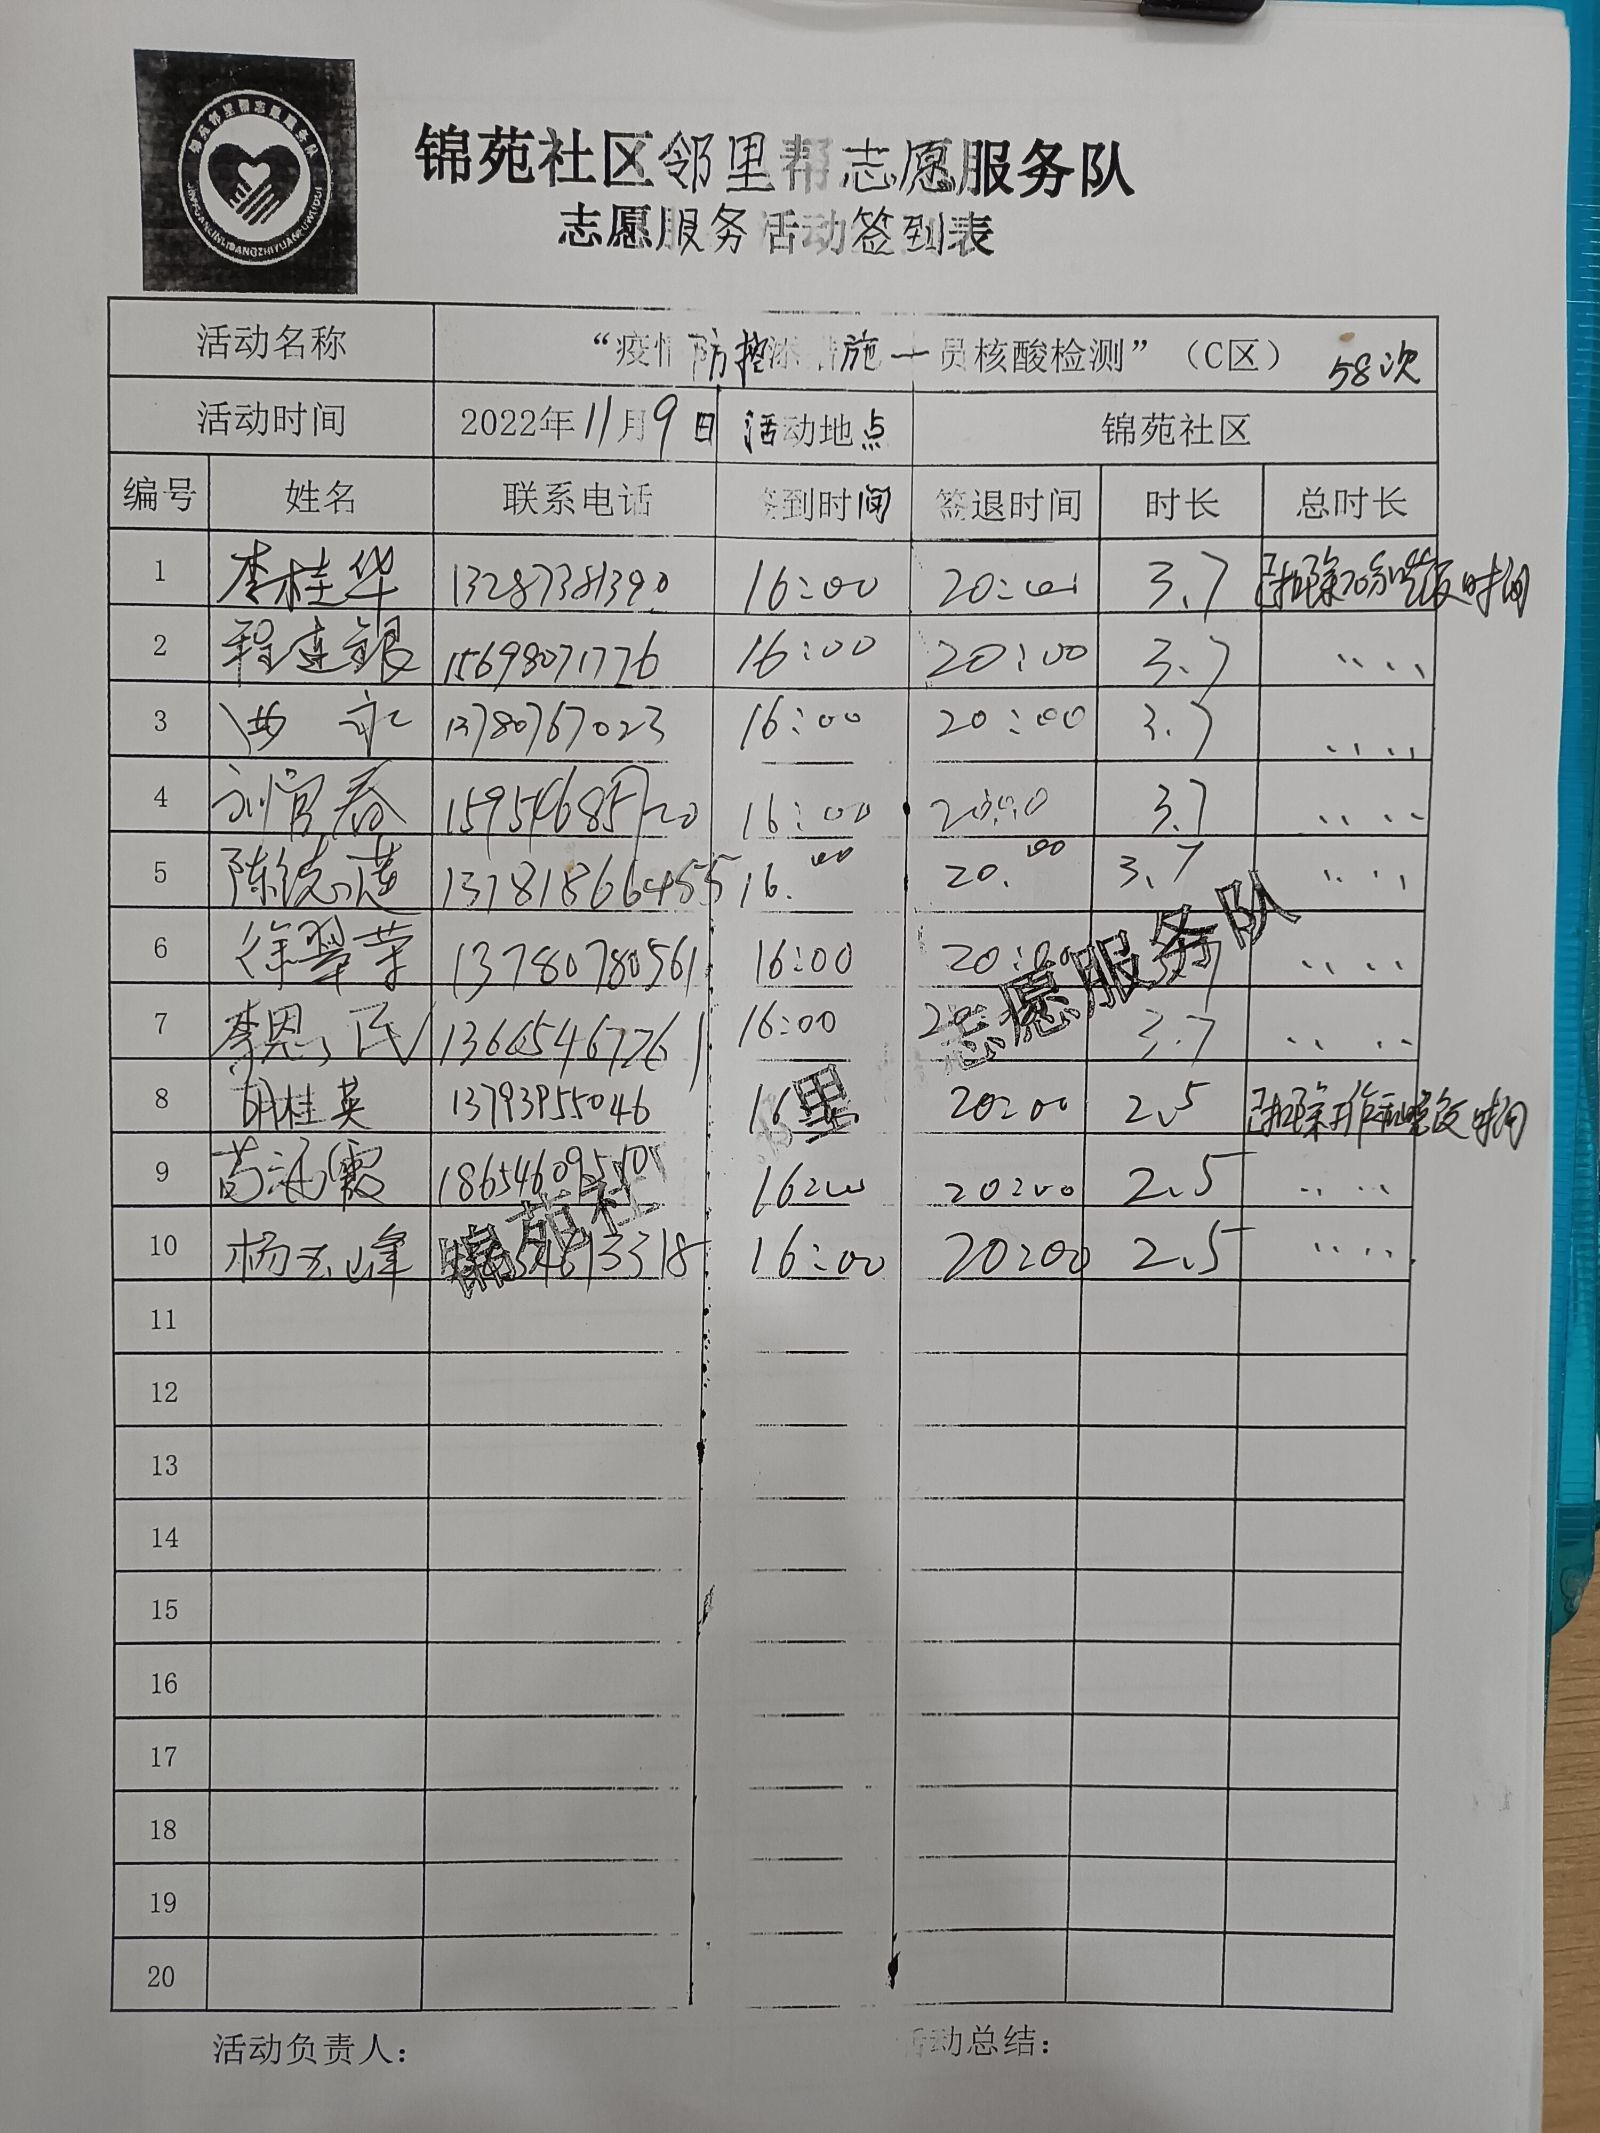 锦苑邻里帮志愿服务队
锦苑社区邻里帮志愿服务队
志愿服务活动签到表
活动名称 “疫情防控 施一 员核酸检测”（C区） 58次
活动时间 2022年11月9日 活动地点 锦苑社区
编号 姓名 联系电话 签到时间 签退时间 时长 总时长
1 李桂华 13287381390 16:00 20:00 3.7 已扣除20分吃饭时间
2 程连银 15698071776 16:00 20:00 3.7 、、、、
3 永 13780767023 16:00 20:00 3.7 、、、、
4 刘宜春 16:00 20:00 3.7 、、、、
5 陈德莲 16.00 20.00 3.7 、、、、
6 徐翠荣 13780780561 16:00 20:00 3.7 、、、、
7 李恩民 13665467261 16:00 3.7 、、、、
8 胡桂英 13793955046 16 20:00 2.5 已扣除 吃饭时间
9 苟 霞 16:00 20:00 2.5 、、、、
10 杨玉峰 16:00 20:00 2.5 、、、、
11
12
13
14
15
16
17
18
19
20
锦苑社 里 志愿服务队
活动负责人： 活动总结：